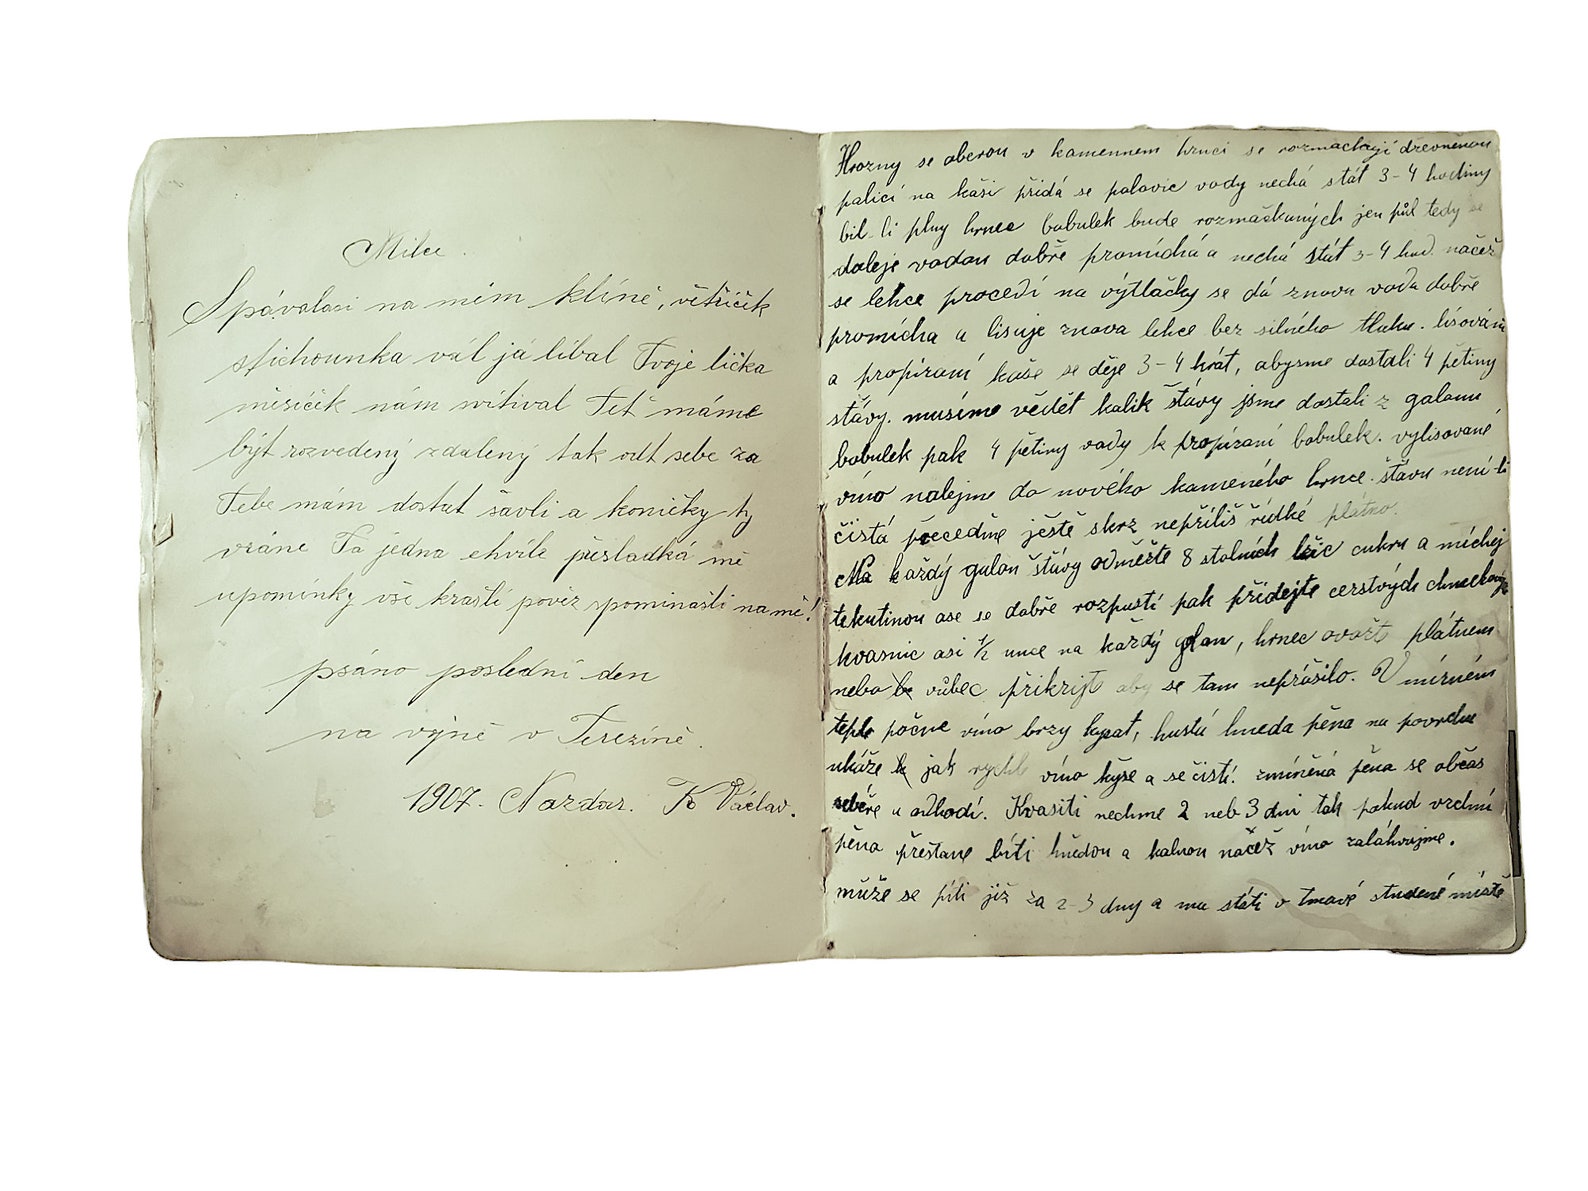 Milce.
Spávalasi na mém klíně, větříček
stichounka vál já líbal Tvoje líčka
měsíček nám svítíval Teť máme
být rozvedený zdalený tak odt sebe za
Tebe mám dostat šavli a koníčky ty
vrané Ta jedna chvíle přesladká mé
upomínky vší krašlí pověz spomínášli na mě!
psáno poslední den
na vojně v Terezíně.
1907. Nazdar. K Václav.
Hrozny se oberou v kamennem hrnci se rozmachají dřevněnou
palicí na kaši přidá se polovic vody nechá stát 3-4 hodiny
bil-li plny hrnec bobulek bude rozmačkaných jen půl tedy se
doleje vodou dobře promíchá a nechá stát 3-4 hod. načež
se lehce procedí na výtlačky se dá znovu voda dobře
promícha a lisuje znova lehce bez silného tlaku. lisování
a propíraní kaše se děje 3-4 krát, abysme dostali 4 pětiny
stávy. musíme vědět kolik šťávy jsme dostali z galonu
bobulek pak 4 pětiny vody k propíraní bobulek. vylisované
víno nalejme do nového kameného hrnce. šťávu není-li
čistá přecedme ještě skrz nepříliš řídké plátno.
Na každý galon šťávy odměřte 8 stolních lžic cukru a míchej
tekutinou ase se dobře rozpustí pak přidejte cerstvých chmelových
kvasnic asi 1/2 unce na každý galon, hrnec ovažt plátnem
nebo vůbec přikrijt aby se tam neprášilo. V mírném
teple počne víno brzy kypat, hustá hneda pěna na povrchu
ukáže jak rychle víno kyse a se čistí. zmíněná pěna se občas
sebére a odhodí. Kvasiti nechme 2 neb 3 dni tak pokud vrchní
pěna přestane bíti hnědou a kalnou načež víno zaláhvujme.
může se píti již za 2-3 dny a ma státi v tmavé studené místě